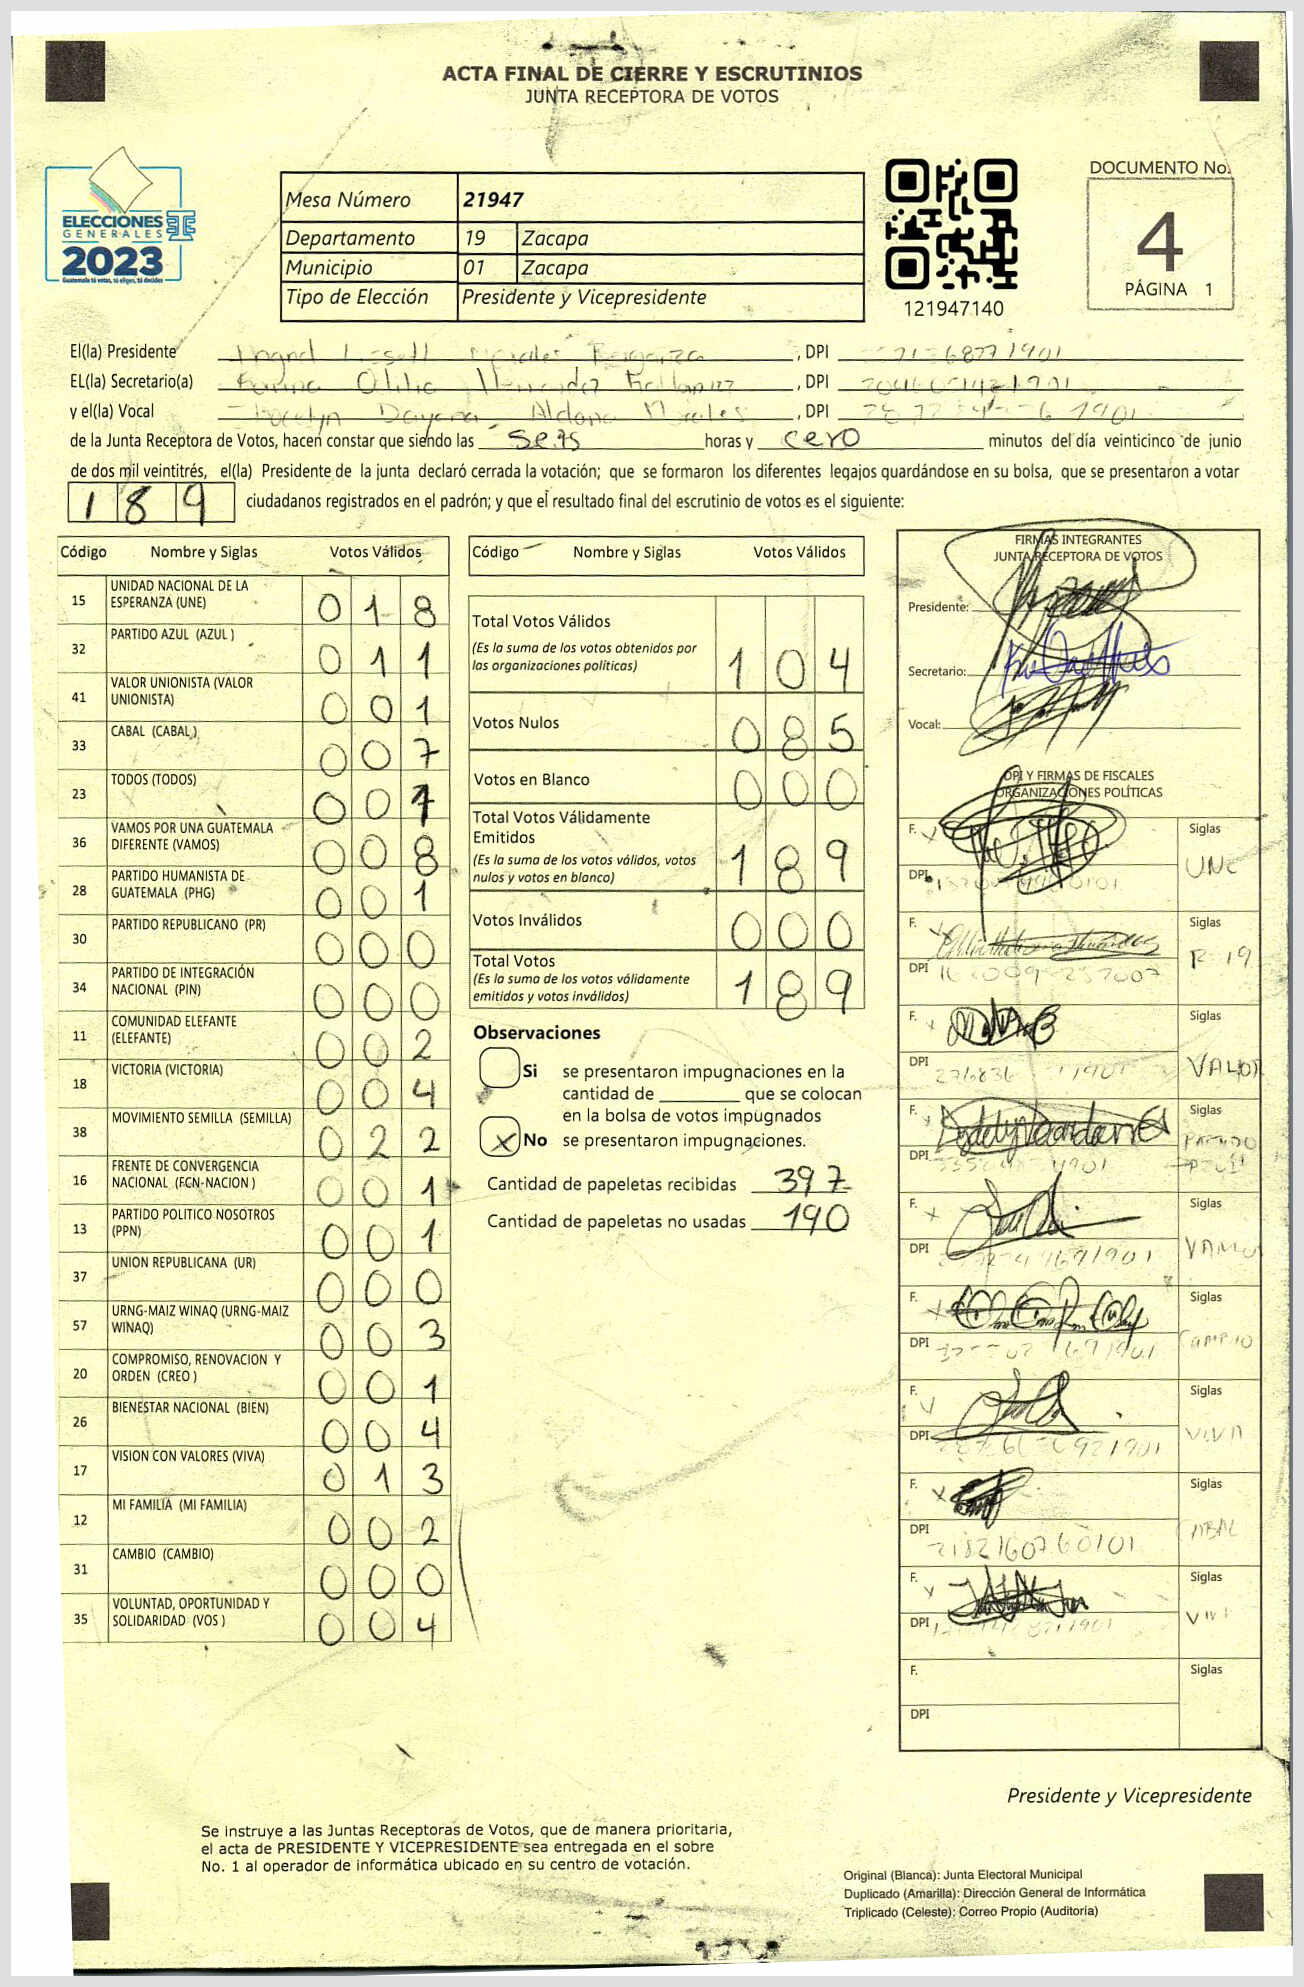 ACTA FINAL DE CIERRE Y ESCRUTINIOS
JUNTA RECEPTORA DE VOTOS
ELECCIONES
GENERALES
2023
Guatemala tú votas, tú eliges, tú decides
Mesa Número 21947
Departamento 19 Zacapa
Municipio 01 Zacapa
Tipo de Elección Presidente y Vicepresidente
121947140
DOCUMENTO No.
4
PÁGINA 1
El(la) Presidente , DPI
EL(la) Secretario(a) , DPI
y el(la) Vocal Dayana Aldana Morales , DPI
de la Junta Receptora de Votos, hacen constar que siendo las seis horas y cero minutos del día veinticinco de junio
de dos mil veintitrés, el(la) Presidente de la junta declaró cerrada la votación; que se formaron los diferentes legajos guardándose en su bolsa, que se presentaron a votar
189 ciudadanos registrados en el padrón; y que el resultado final del escrutinio de votos es el siguiente:
Código Nombre y Siglas Votos Válidos
15 UNIDAD NACIONAL DE LA ESPERANZA (UNE) 018
32 PARTIDO AZUL (AZUL ) 011
41 VALOR UNIONISTA (VALOR UNIONISTA) 001
33 CABAL (CABAL ) 007
23 TODOS (TODOS) 00
36 VAMOS POR UNA GUATEMALA DIFERENTE (VAMOS) 008
28 PARTIDO HUMANISTA DE GUATEMALA (PHG) 001
30 PARTIDO REPUBLICANO (PR) 000
34 PARTIDO DE INTEGRACIÓN NACIONAL (PIN) 000
11 COMUNIDAD ELEFANTE (ELEFANTE) 002
18 VICTORIA (VICTORIA) 004
38 MOVIMIENTO SEMILLA (SEMILLA) 022
16 FRENTE DE CONVERGENCIA NACIONAL (FCN-NACION ) 001
13 PARTIDO POLITICO NOSOTROS (PPN) 001
37 UNION REPUBLICANA (UR) 000
57 URNG-MAIZ WINAQ (URNG-MAIZ WINAQ) 003
20 COMPROMISO, RENOVACION Y ORDEN (CREO ) 001
26 BIENESTAR NACIONAL (BIEN) 004
17 VISION CON VALORES (VIVA) 013
12 MI FAMILIA (MI FAMILIA) 002
31 CAMBIO (CAMBIO) 000
35 VOLUNTAD, OPORTUNIDAD Y SOLIDARIDAD (VOS ) 004
Código Nombre y Siglas Votos Válidos
Total Votos Válidos
(Es la suma de los votos obtenidos por las organizaciones políticas) 104
Votos Nulos 085
Votos en Blanco 000
Total Votos Válidamente Emitidos
(Es la suma de los votos válidos, votos nulos y votos en blanco) 189
Votos Inválidos 000
Total Votos
(Es la suma de los votos válidamente emitidos y votos inválidos) 189
Observaciones
Si se presentaron impugnaciones en la
cantidad de ________ que se colocan
en la bolsa de votos impugnados
X No se presentaron impugnaciones.
Cantidad de papeletas recibidas 397
Cantidad de papeletas no usadas 190
FIRMAS INTEGRANTES
JUNTA RECEPTORA DE VOTOS
Presidente:
Secretario:
Vocal:
DPI Y FIRMAS DE FISCALES
ORGANIZACIONES POLÍTICAS
F. Siglas
DPI UNE
F. Siglas
DPI
F. Siglas
DPI VALOR
F. Siglas
DPI PARTIDO
F. Siglas
DPI VAMOS
F. Siglas
DPI CAMBIO
F. Siglas
DPI VIVA
F. Siglas
DPI CABAL
F. Siglas
DPI
F. Siglas
DPI
Presidente y Vicepresidente
Se instruye a las Juntas Receptoras de Votos, que de manera prioritaria,
el acta de PRESIDENTE Y VICEPRESIDENTE sea entregada en el sobre
No. 1 al operador de informática ubicado en su centro de votación.
Original (Blanca): Junta Electoral Municipal
Duplicado (Amarilla): Dirección General de Informática
Triplicado (Celeste): Correo Propio (Auditoría)